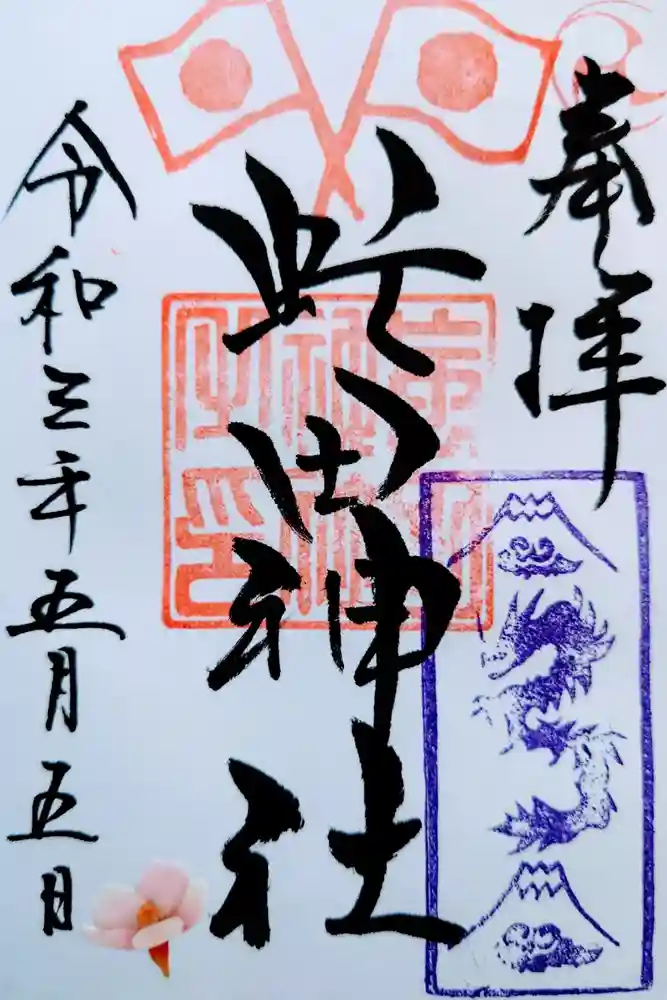 奉拝
蛇田神社
令和三年五月五日